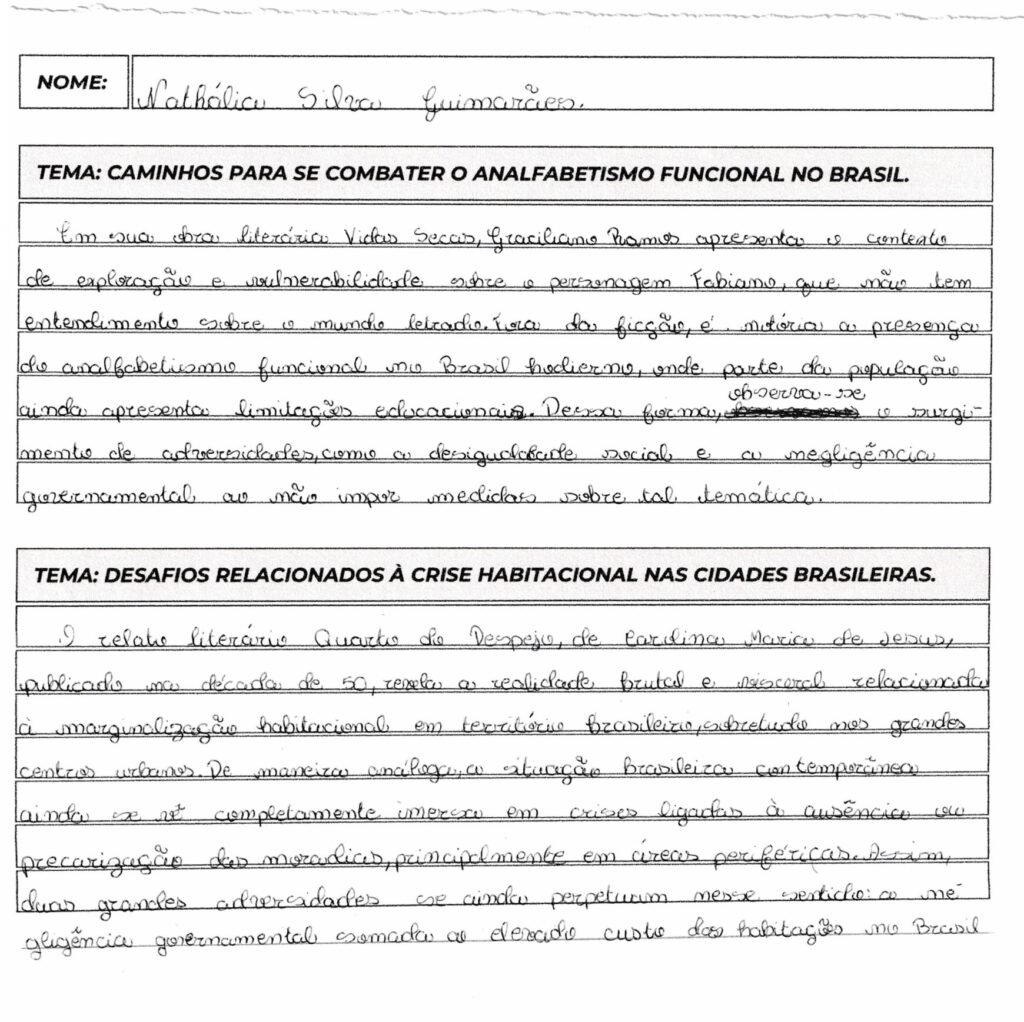 NOME: Nathália Silva Guimarães.
TEMA: CAMINHOS PARA SE COMBATER O ANALFABETISMO FUNCIONAL NO BRASIL.
Em sua obra literária Vidas Secas, Graciliano Ramos apresenta o contexto
de exploração e vulnerabilidade sobre o personagem Fabiano, que não tem
entendimento sobre o mundo letrado. Fora da ficção, é notória a presença
do analfabetismo funcional no Brasil hodierno, onde parte da população
ainda apresenta limitações educacionais. Dessa forma, observa-se o surgi-
mento de adversidades, como a desigualdade social e a negligência
governamental ao não impor medidas sobre tal temática.
TEMA: DESAFIOS RELACIONADOS À CRISE HABITACIONAL NAS CIDADES BRASILEIRAS.
O relato literário Quarto de Despejo, de Carolina Maria de Jesus,
publicado na década de 50, revela a realidade brutal e visceral relacionada
à marginalização habitacional em território brasileiro, sobretudo nos grandes
centros urbanos. De maneira análoga, a situação brasileira contemporânea
ainda se vê completamente imersa em crises ligadas à ausência ou
precarização das moradias, principalmente em áreas periféricas. Assim,
duas grandes adversidades se ainda perpetuam nesse sentido: a ne-
gligência governamental somada ao elevado custo das habitações no Brasil